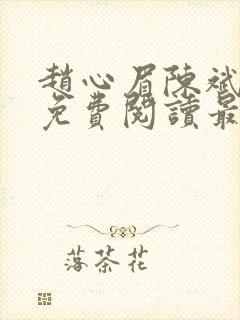 趙心眉陳斌
免費閱讀最
落茶花